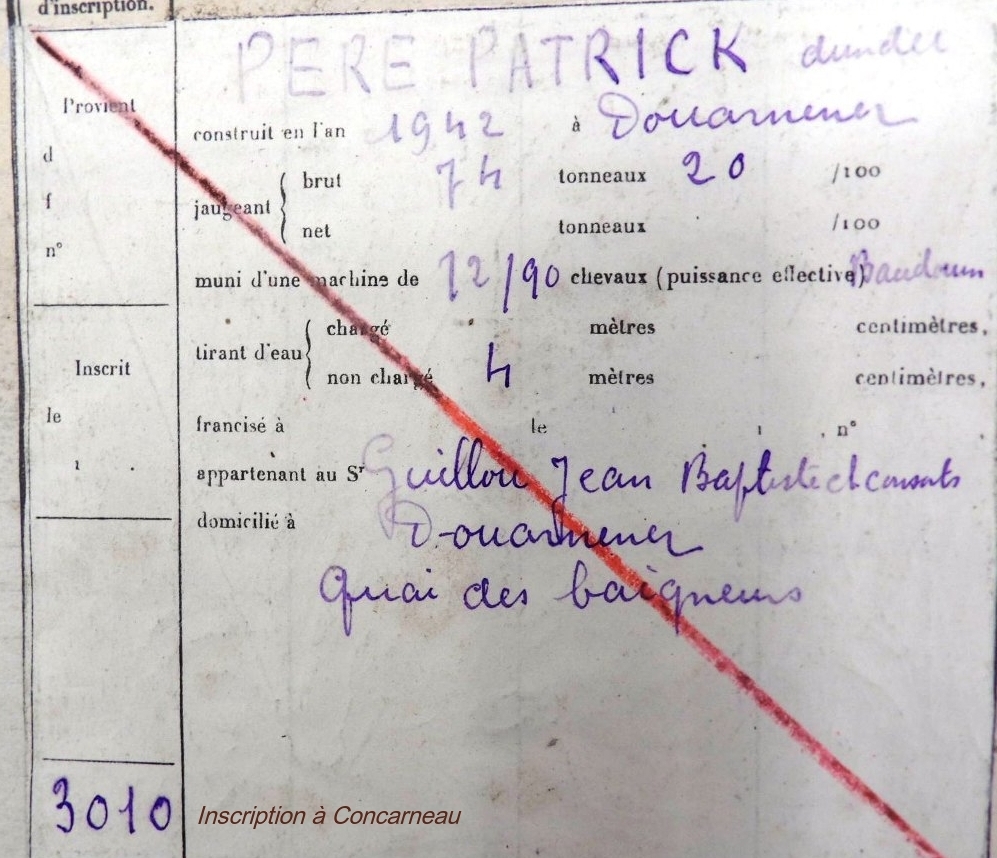 d'inscription.
PERE PATRICK dundee
Provient
construit en l'an 1942 à Douarnenez
d
brut 74 tonneaux 20 /100
f
jaugeant
n°
net tonneaux /100
muni d'une machine de 72/90 chevaux (puissance effective) Baudouin
chargé mètres centimètres,
tirant d'eau
Inscrit
non chargé 4 mètres centimètres,
le
francisé à le 1 , n°
1 .
appartenant au Sr Guillou Jean Baptiste et consorts
domicilié à Douarnenez
Quai des baigneurs
3010
Inscription à Concarneau